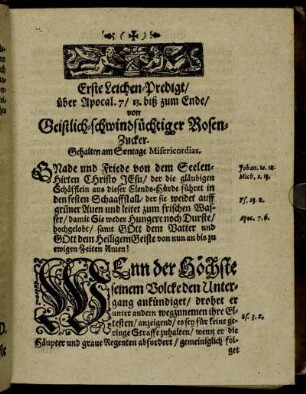 Erste Leichen-Predigt/
über Apocal. 7/ 13. biß zum Ende/
von
Geistlich-schwindsüchtiger Rosen-
Zucker.
Gehalten am Sontage Misericordias.
GNade und Friede von dem Seelen-
Hirten Christo JEsu/ der die gläubigen
Schäfflein aus dieser Elends-Hürde führet in
den festen Schaaffstall/ der sie weidet auff
grüner Auen und leitet zum frischen Was-
ser/ damit Sie weder Hunger noch Durste/
hochgelobt/ samt GOtt dem Vatter und
GOtt dem Heiligem Geiste von nun an biß zu
ewigen Zeiten Amen!
Johan. 10. 12.
Mich. 2. 13.
Ps. 23. 2.
Apoc. 7. 6.
WEnn der Höchste
seinem Volcke den Unter-
gang ankündiget/ drohet er
unter andern wegzunemen ihre El-
testen/ anzeigend/ es sey für keine ge-
ringe Straffe zuhalten/ wenn er die
Häupter und graue Regenten abfordert/ gemeiniglich fol-
get
Es. 3. 2.